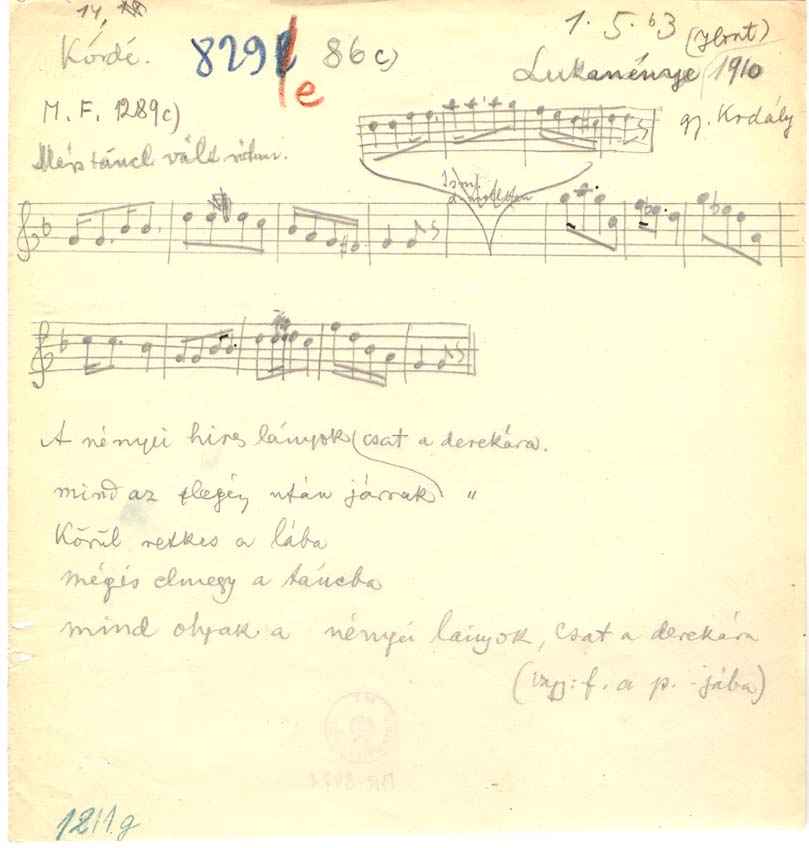 14.
1. 5. b3 (Hont)
Kérdé. 829 e 86 c)
Lukanénye 1910
M. F. 1289c)
gy. Kodály
Más táncl. vált. ritm.
Ism.
A nényei hires lányok csat a derekára.
mind az legény után járnak "
Körül retkes a lába
mégis elmegy a táncba
mind olyak a nényei lányok, csat a derekára
(vagy: f. a p. -jába)
1211.g